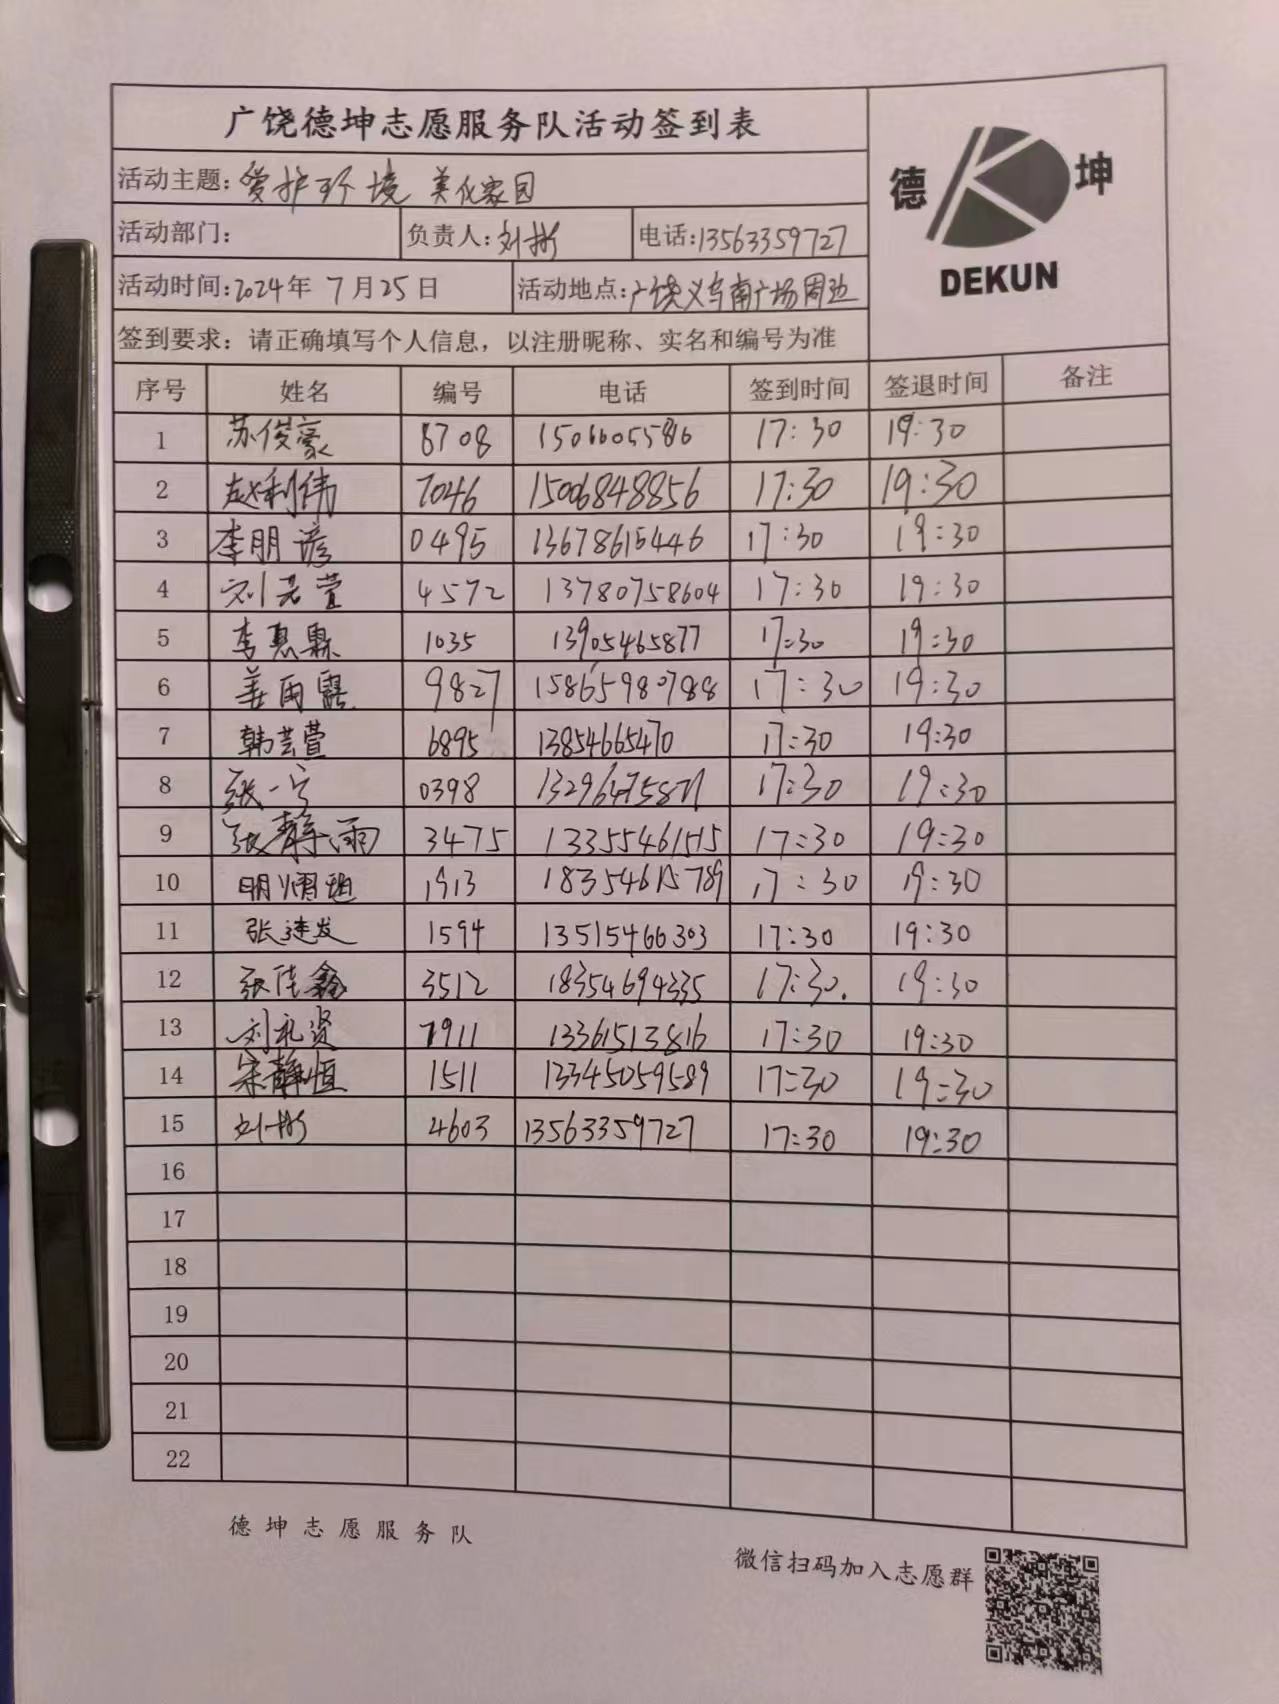 广饶德坤志愿服务队活动签到表
德 坤
DEKUN
活动主题：爱护环境 美化家园
活动部门： 负责人：刘彬 电话：13563359727
活动时间：2024年 7月25日 活动地点：广饶义乌南广场周边
签到要求：请正确填写个人信息，以注册昵称、实名和编号为准
序号 姓名 编号 电话 签到时间 签退时间 备注
1 苏俊豪 8708 15066055786 17:30 19:30
2 赵利伟 7046 15006848856 17:30 19:30
3 李朋谚 0495 13678615446 17:30 19:30
4 刘若萱 4572 13780758604 17:30 19:30
5 李惠霖 1035 13905465877 17:30 19:30
6 姜雨露 9827 15865980788 17:30 19:30
7 韩芸萱 6895 13854665470 17:30 19:30
8 张一宁 0398 17:30 19:30
9 张静雨 3475 13355461515 17:30 19:30
10 1913 18354615789 17:30 19:30
11 张连发 1594 13515466303 17:30 19:30
12 张佳鑫 3512 18354694335 17:30. 19:30
13 刘礼贤 7911 13361513816 17:30 19:30
14 宋静恒 1511 13345059589 17:30 19:30
15 刘彬 4603 13563359727 17:30 19:30
16
17
18
19
20
21
22
德坤志愿服务队
微信扫码加入志愿群